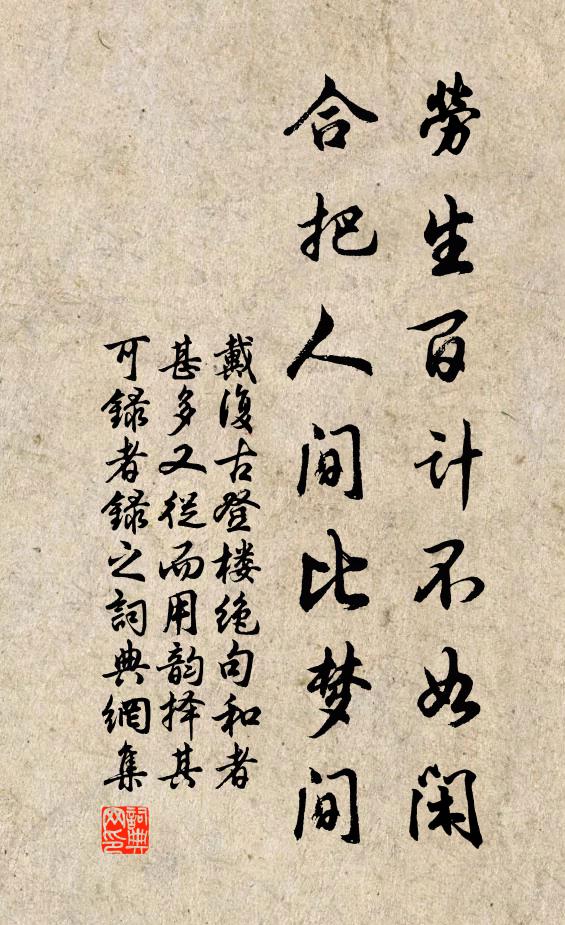 勞生百计不如闲
合把人间比梦间
戴復古登楼绝句和者
甚多又從而用韵择其
可録者録之詞典網集
詞典
网印